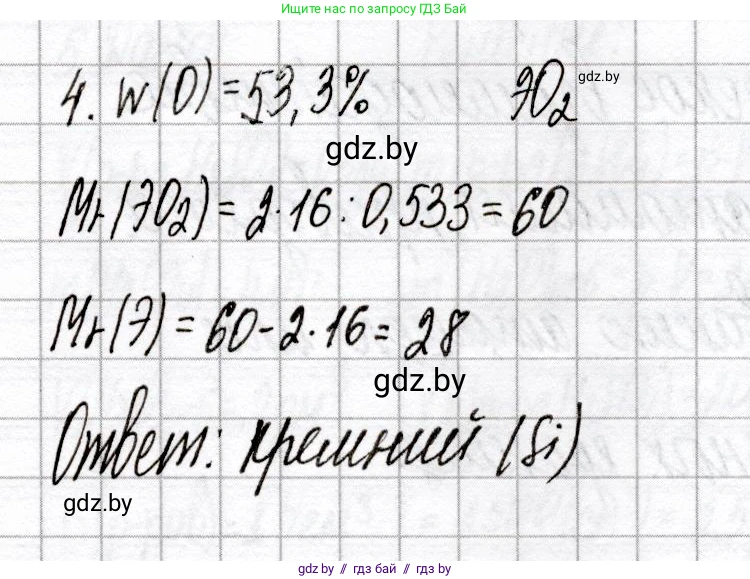 Ищите нас по запросу ГДЗ Бай
4. w(O) = 53,3% ЭO₂
gdz.by
gdz.by
Mr(ЭO₂) = 2·16 : 0,533 = 60
Mr(Э) = 60 - 2·16 = 28
gdz.by
Ответ: кремний (Si)
gdz.by
gdz.by // гдз бай // gdz.by